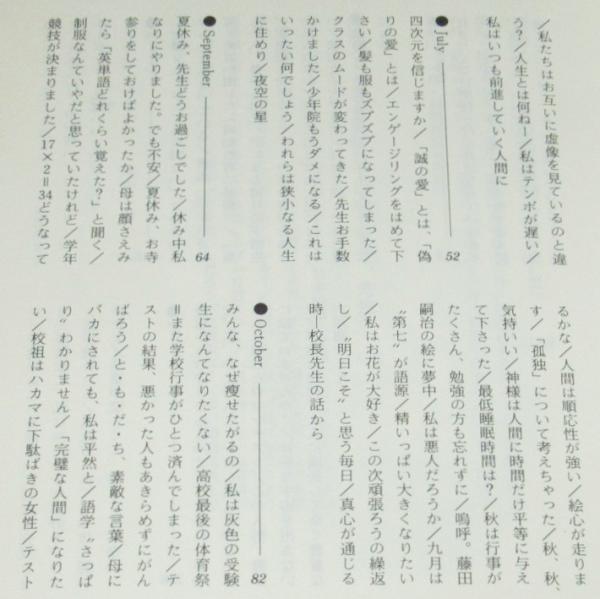 ／私たちはお互いに虚像を見ているのと違
う？／人生とは何ねー／私はテンポが遅い／
私はいつも前進していく人間に
●July 52
四次元を信じますか／「誠の愛」とは、「偽
りの愛」とは／エンゲージリングをはめて下
さい／髪も服もズブズブになってしまった／
クラスのムードが変わってきた／先生お手数
かけました／少年院もうダメになる／これは
いったい何でしょう／われらは狭小なる人生
に住めり／夜空の星
●September 64
夏休み、先生どうお過ごしでした／休み中私
なりにやりました。でも不安／夏休み、お寺
参りをしておけばよかったか／母は顔さえみ
たら「英単語どれくらい覚えた？」と聞く／
制服なんていやだと思っていたけれど／学年
競技が決まりました／17×2＝34どうなって
るかな／人間は順応性が強い／絵心が走りま
す／「孤独」について考えちゃった／秋、秋、
気持いい／神様は人間に時間だけ平等に与え
て下さった／最低睡眠時間は？／秋は行事が
たくさん、勉強の方も忘れずに／嗚呼。藤田
嗣治の絵に夢中／私は悪人だろうか／九月は
〝第七〟が語源／精いっぱい大きくなりたい
／私はお花が大好き／この次頑張ろうの繰返
し／〝明日こそ〟と思う毎日／真心が通じる
時―校長先生の話から
●October 82
みんな、なぜ痩せたがるの／私は灰色の受験
生になんてなりたくない／高校最後の体育祭
＝また学校行事がひとつ済んでしまった／テ
ストの結果、悪かった人もあきらめずにがん
ばろう／と・も・だ・ち、素敵な言葉／母に
バカにされても、私は平然と／語学〝さっぱ
り〟わかりません／「完璧な人間」になりた
い／校祖はハカマに下駄ばきの女性／テスト